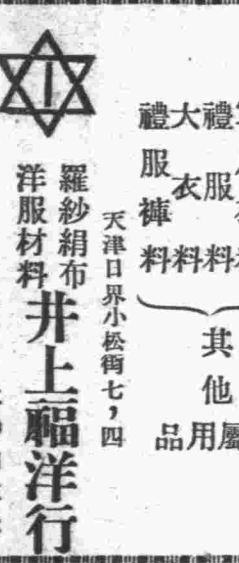 禮服料
大衣料
禮服褲料
其他
屬用品
天津日界小松街七，四
羅紗絹布
洋服材料
井上福洋行